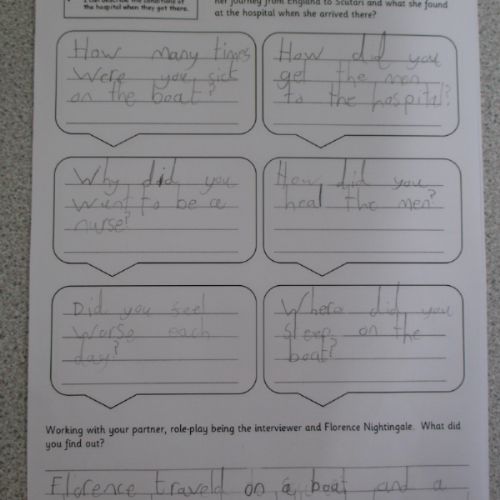 I can describe the conditions at
the hospital when they got there.
her journey from England to Scutari and what she found
at the hospital when she arrived there?
How many times
Were you sick
on the boat?
How did you
get the men
to the hospital?
Why did you
want to be a
nurse?
How did you
heal the men?
Did you feel
worse each
day?
Where did you
sleep on the
boat?
Working with your partner, role-play being the interviewer and Florence Nightingale. What did
you find out?
Florence traveld on a boat and a